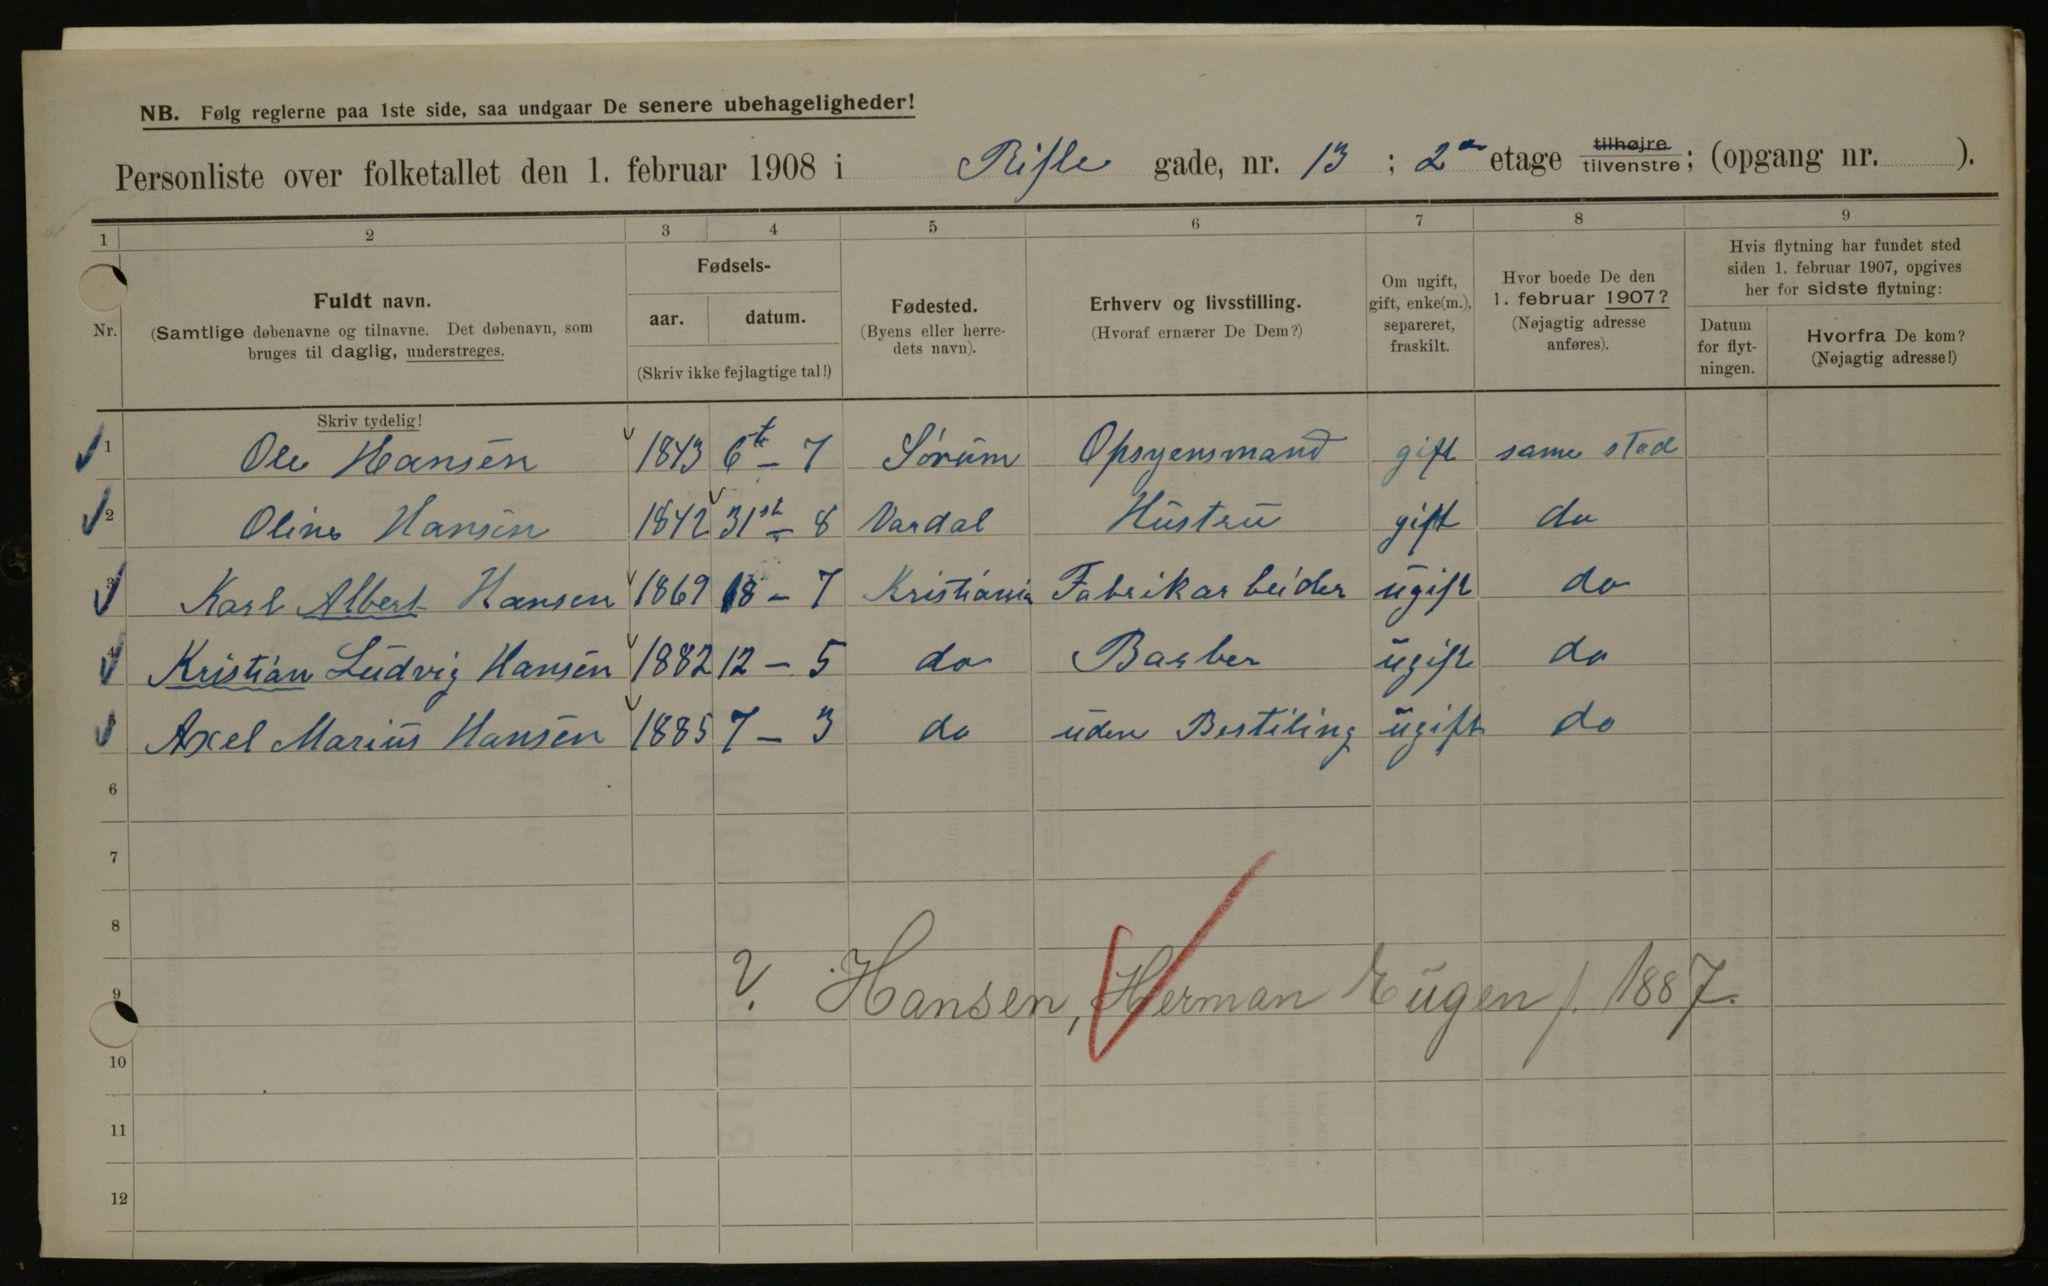 NB. Følg reglerne paa 1ste side, saa undgaar De senere ubehageligheder!
Personliste over folketallet den 1. februar 1908 i Rifle gade, nr. 13 ; 2 etage tilhøjre tilvenstre; (opgang nr. ).
1 2 3 4 5 6 7 8 9
Nr.
Fuldt navn.
(Samtlige døbenavne og tilnavne. Det døbenavn, som
bruges til daglig, understreges.
Skriv tydelig!
Fødsels-
aar. datum.
(Skriv ikke fejlagtige tal!)
Fødested.
(Byens eller herre-
dets navn).
Erhverv og livsstilling.
(Hvoraf ernærer De Dem?)
Om ugift,
gift, enke(m.),
separeret,
fraskilt.
Hvor boede De den
1. februar 1907?
(Nøjagtig adresse
anføres).
Hvis flytning har fundet sted
siden 1. februar 1907, opgives
her for sidste flytning:
Datum
for flyt-
ningen.
Hvorfra De kom?
(Nøjagtig adresse!)
1 Ole Hansen 1843 6te – 7 Sörum Opsyensmand gift same sted
2 Oline Hansen 1842 31st – 8 Vardal Hustru gift do
3 Karl Albert Hansen 1869 18 – 7 Kristiania Fabrikarbeider ugift do
4 Kristian Ludvig Hansen 1882 12 – 5 do Barber ugift do
5 Axel Marius Hansen 1885 7 – 3 do uden Bestiling ugift do
6
7
8
9 ?. Hansen, Herman Eugen f. 1887.
10
11
12